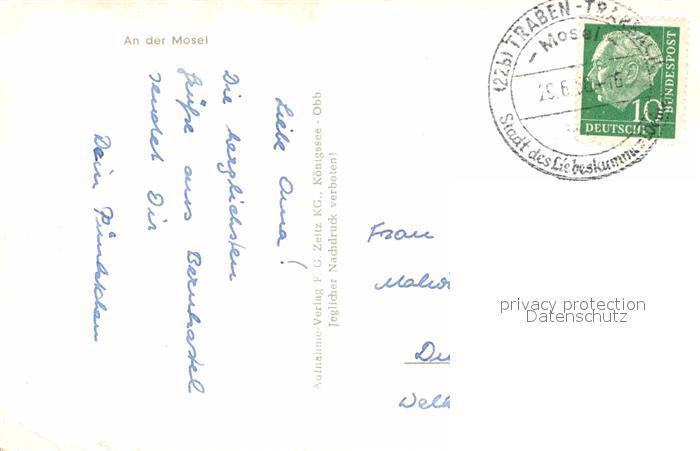 An der Mosel
Liebe Oma!
Die herzlichsten
Grüße aus Bernkastel
sendet Dir
Dein
Aufnahme-Verlag F. G. Zeitz KG., Königssee - Obb.
Jeglicher Nachdruck verboten!
(22b) TRABEN-TRARBACH
- Mosel -
Stadt des Liebeskummer
10
DEUTSCHE
BUNDESPOST
Frau
privacy protection
Datenschutz